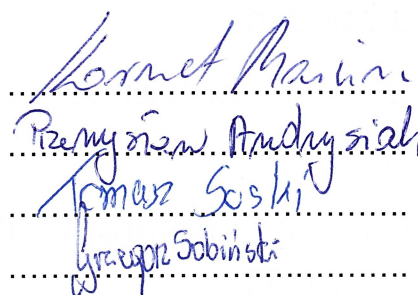 Kornet Marcin
Przemysław Andrysiak
Tomasz Soski
Grzegorz Sobiński